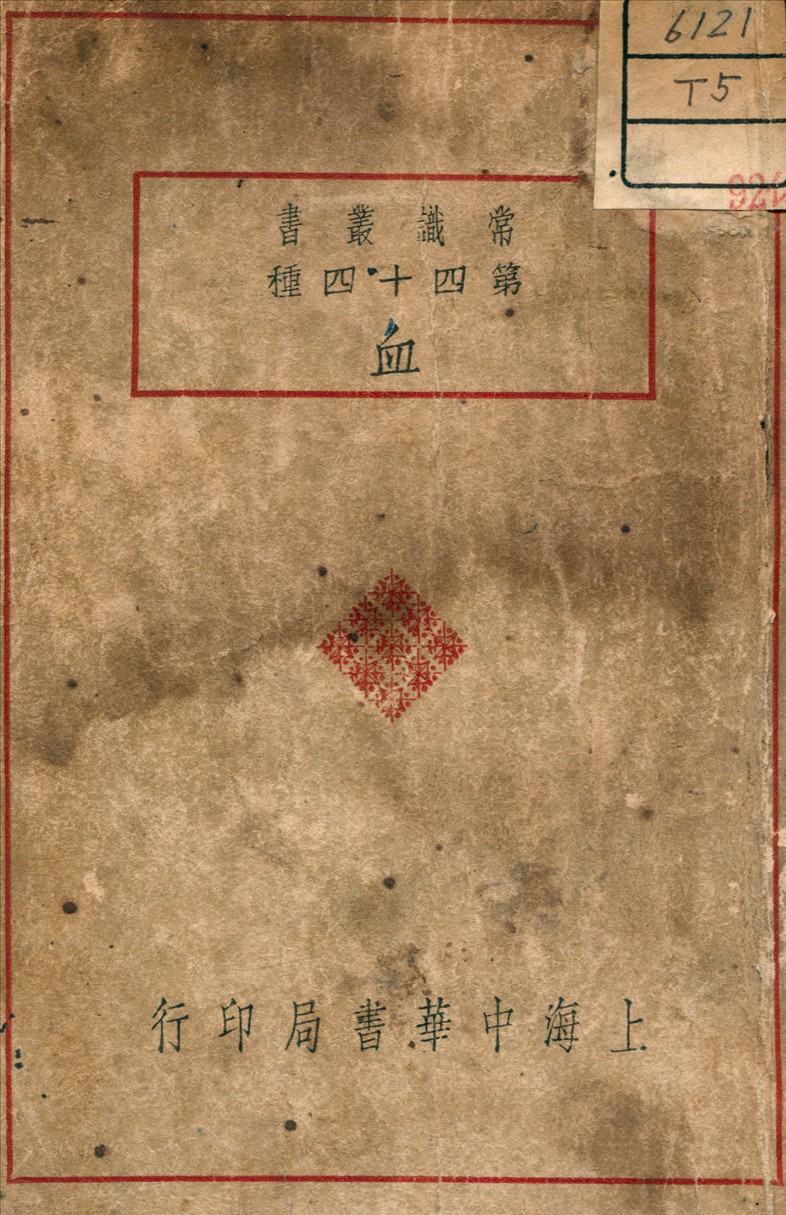 6121
T5
常識叢書
第四十四種
血
上海中華書局印行